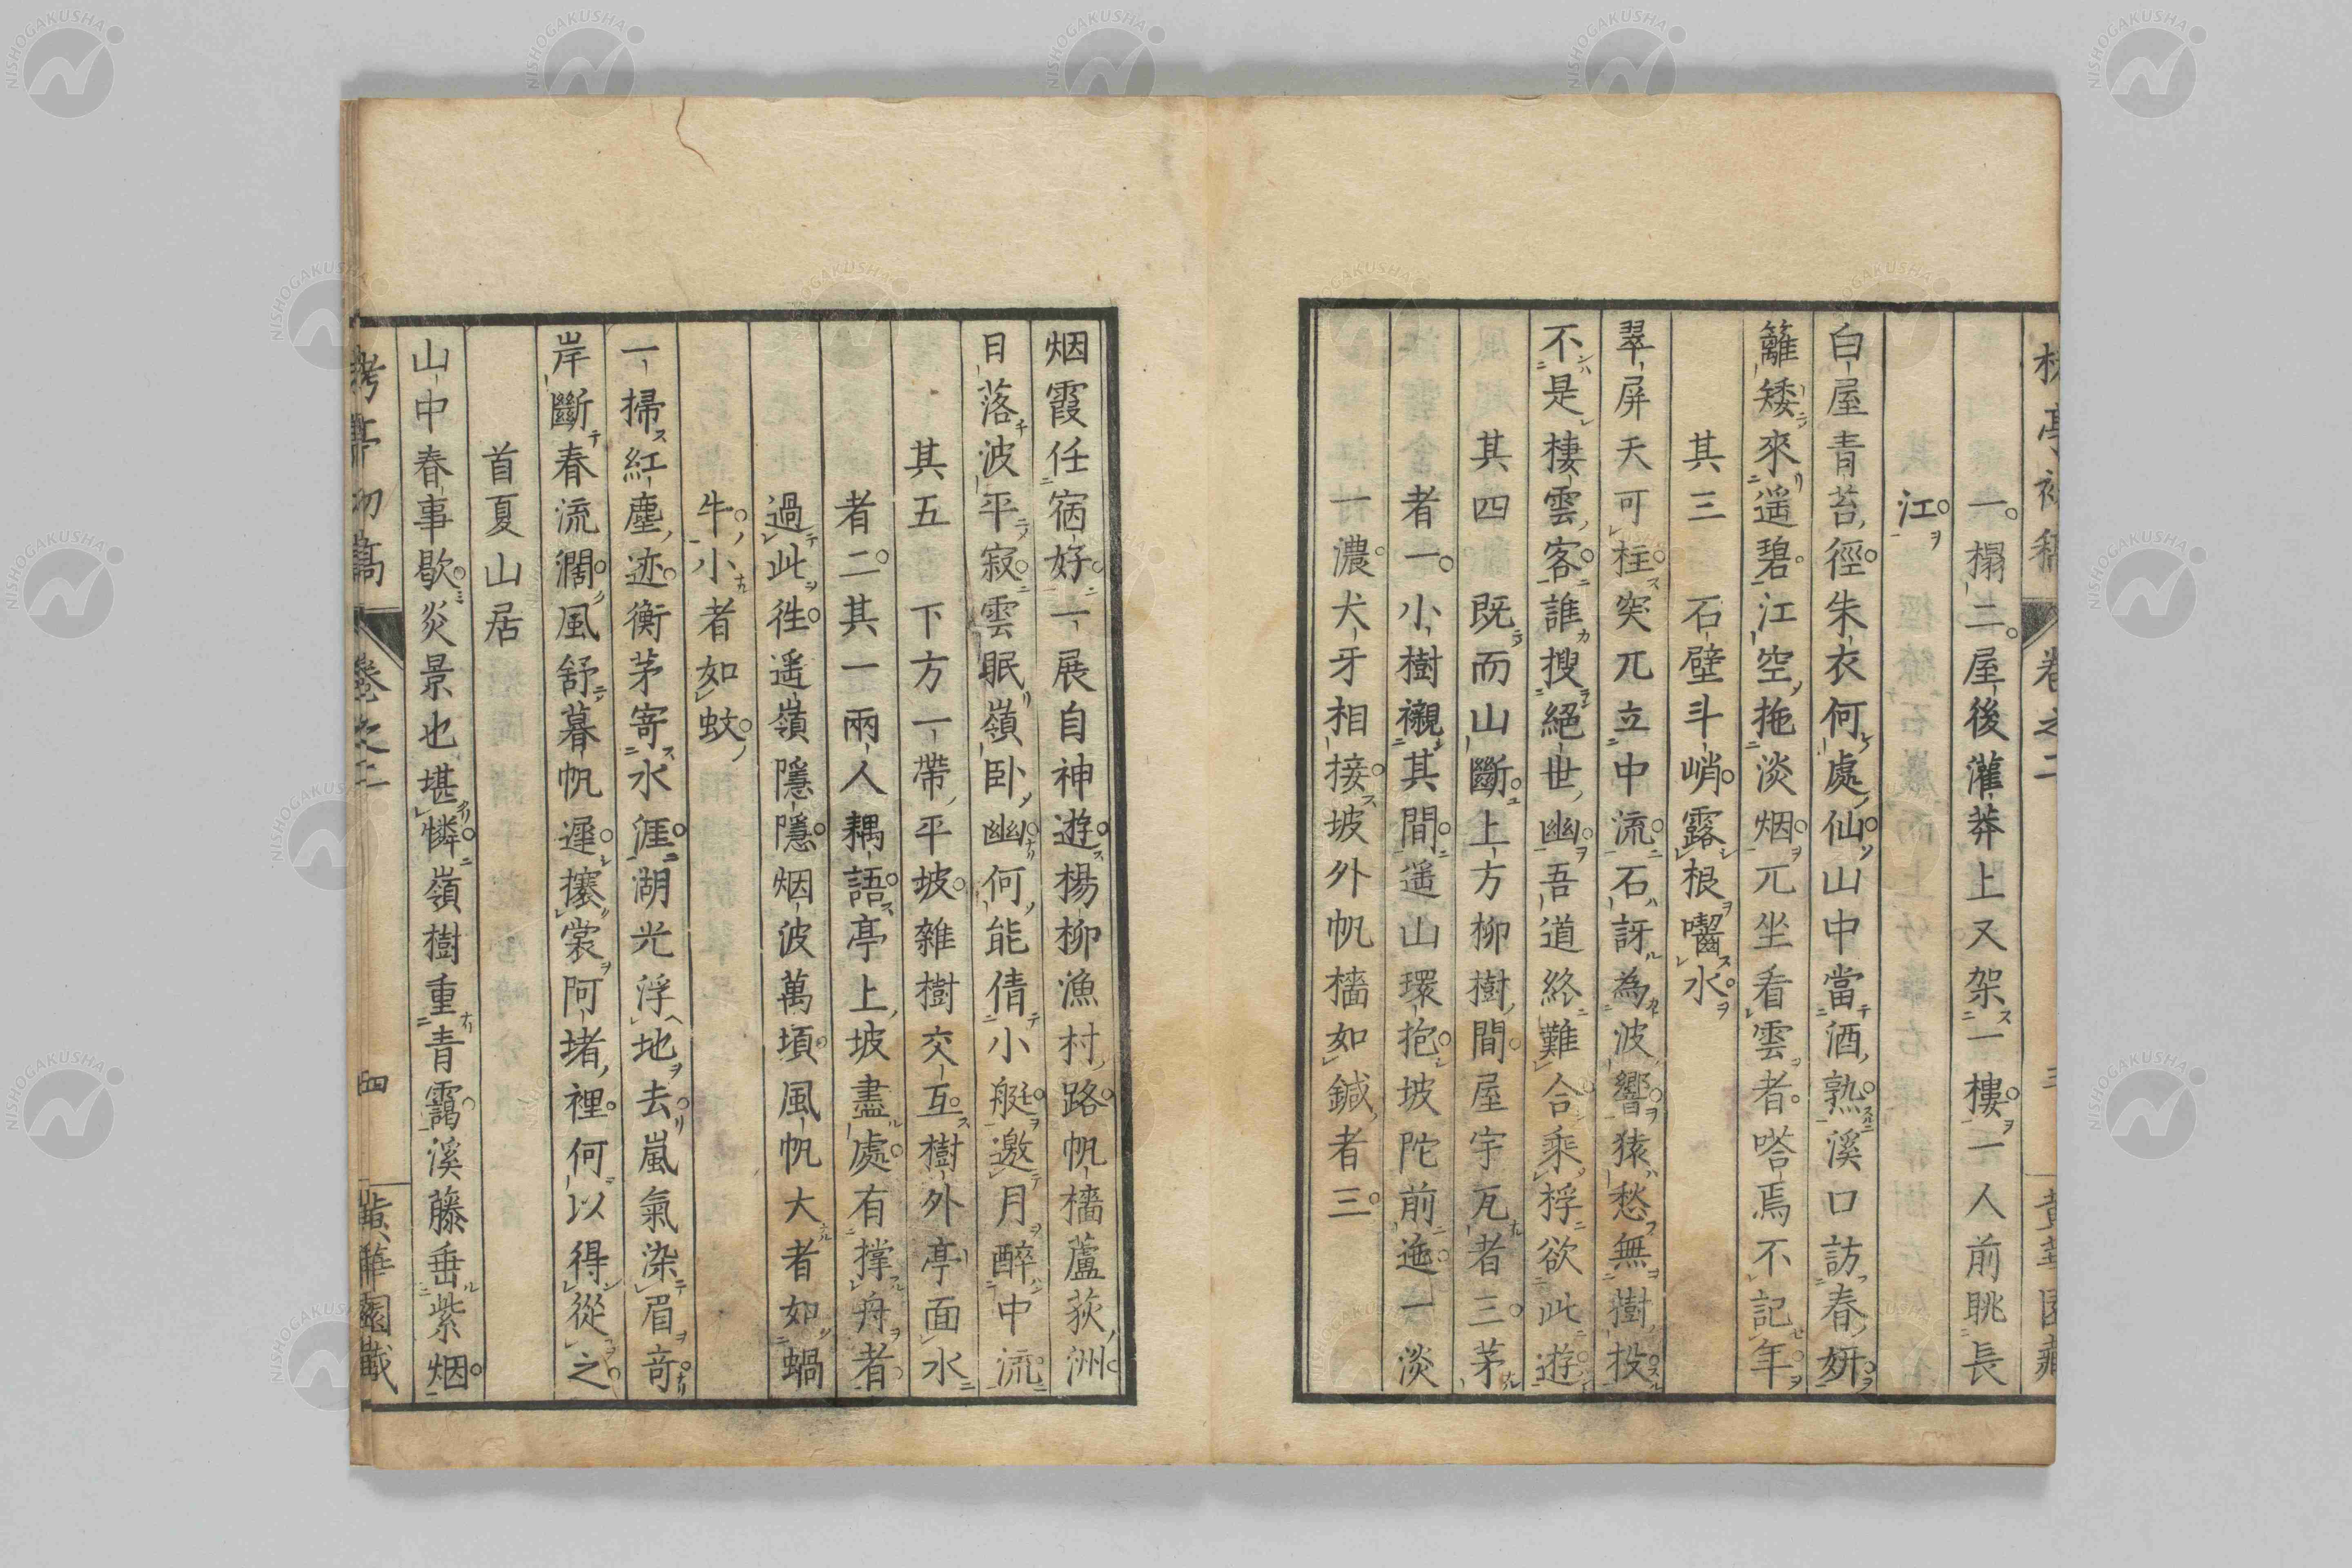 一榻二屋後灌莽上又架一樓一人前眺長
江
白屋青苔徑朱衣何處仙山中當酒熟溪口訪春妍
籬矮來遥碧江空拖淡烟兀坐看雲者嗒焉不記年
其三 石壁斗峭露根囓水
翠屏天可柱突兀立中流石訝為波響猿愁無樹投
不是棲雲客誰搜絕世幽吾道終難合乘桴欲此遊
其四 既而山斷上方柳樹間屋宇瓦者三茅
者一小樹襯其間遥山環抱坡陀前迤一淡
一濃犬牙相接坡外帆檣如鍼者三
卷之二
三
烟霞任宿好一展自神遊楊柳漁村路帆檣蘆荻洲
日落波平寂雲眠嶺臥幽何能倩小艇邀月醉中流
其五 下方一帶平坡雜樹交互樹外亭面水
者二其一兩人耦語亭上坡盡處有撑舟者
過此徃遥嶺隱隱烟波萬頃風帆大者如蝸
牛小者如蚊
一掃紅塵迹衡茅寄水涯湖光浮地去嵐氣染眉竒
岸斷春流濶風舒暮帆遲攘裳阿堵裡何以得從之
首夏山居
山中春事歇炎景也堪憐嶺樹重青靄溪藤垂紫烟
卷之二
四
黄華園藏
NISHOGAKUSHA